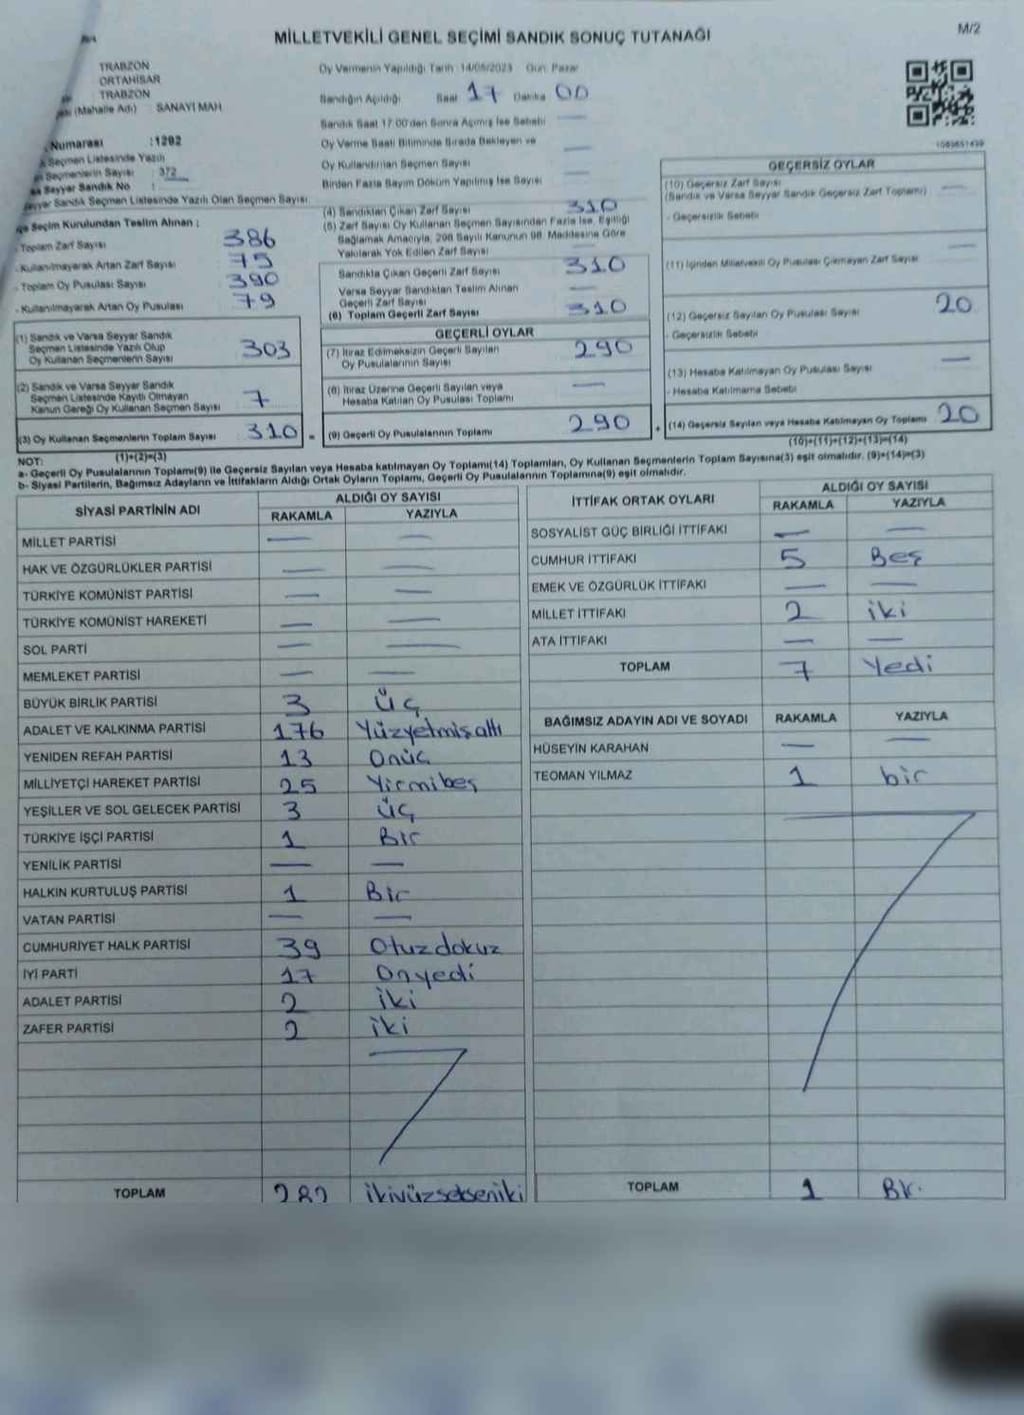 MİLLETVEKİLİ GENEL SEÇİMİ SANDIK SONUÇ TUTANAĞI
M/2
TRABZON
ORTAHİSAR
TRABZON
(Mahalle Adı) : SANAYİ MAH
Numarası :1292
Seçmen Listesinde Yazılı
Seçmenlerin Sayısı : 372
Seyyar Sandık No :
Seyyar Sandık Seçmen Listesinde Yazılı Olan Seçmen Sayısı
Oy Vermenin Yapıldığı Tarih :14/05/2023 Gün: Pazar
Sandığın Açıldığı Saat 17 Dakika 00
Sandık Saat 17:00'den Sonra Açılmış İse Sebebi —
Oy Verme Saati Bitiminde Sırada Bekleyen ve
Oy Kullandırılan Seçmen Sayısı —
Birden Fazla Sayım Döküm Yapılmış İse Sayısı —
Seçim Kurulundan Teslim Alınan :
- Toplam Zarf Sayısı 386
- Kullanılmayarak Artan Zarf Sayısı 75
- Toplam Oy Pusulası Sayısı 390
- Kullanılmayarak Artan Oy Pusulası 79
(1) Sandık ve Varsa Seyyar Sandık
Seçmen Listesinde Yazılı Olup
Oy Kullanan Seçmenlerin Sayısı 303
(2) Sandık ve Varsa Seyyar Sandık
Seçmen Listesinde Kayıtlı Olmayan
Kanun Gereği Oy Kullanan Seçmen Sayısı 7
(3) Oy Kullanan Seçmenlerin Toplam Sayısı 310
(1)+(2)=(3)
(4) Sandıktan Çıkan Zarf Sayısı 310
(5) Zarf Sayısı Oy Kullanan Seçmen Sayısından Fazla İse, Eşitliği
Sağlamak Amacıyla, 298 Sayılı Kanunun 98. Maddesine Göre
Yakılarak Yok Edilen Zarf Sayısı —
Sandıkta Çıkan Geçerli Zarf Sayısı 310
Varsa Seyyar Sandıktan Teslim Alınan
Geçerli Zarf Sayısı —
(6) Toplam Geçerli Zarf Sayısı 310
GEÇERLİ OYLAR
(7) İtiraz Edilmeksizin Geçerli Sayılan
Oy Pusulalarının Sayısı 290
(8) İtiraz Üzerine Geçerli Sayılan veya
Hesaba Katılan Oy Pusulası Toplamı —
= (9) Geçerli Oy Pusulalarının Toplamı 290
GEÇERSİZ OYLAR
(10) Geçersiz Zarf Sayısı
(Sandık ve Varsa Seyyar Sandık Geçersiz Zarf Toplamı) —
- Geçersizlik Sebebi
(11) İçinden Milletvekili Oy Pusulası Çıkmayan Zarf Sayısı —
(12) Geçersiz Sayılan Oy Pusulası Sayısı 20
- Geçersizlik Sebebi
(13) Hesaba Katılmayan Oy Pusulası Sayısı —
- Hesaba Katılmama Sebebi
+ (14) Geçersiz Sayılan veya Hesaba Katılmayan Oy Toplamı 20
(10)+(11)+(12)+(13)=(14)
NOT:
a- Geçerli Oy Pusulalarının Toplamı(9) ile Geçersiz Sayılan veya Hesaba katılmayan Oy Toplamı(14) Toplamları, Oy Kullanan Seçmenlerin Toplam Sayısına(3) eşit olmalıdır. (9)+(14)=(3)
b- Siyasi Partilerin, Bağımsız Adayların ve İttifakların Aldığı Ortak Oyların Toplamı, Geçerli Oy Pusulalarının Toplamına(9) eşit olmalıdır.
SİYASİ PARTİNİN ADI ALDIĞI OY SAYISI
RAKAMLA YAZIYLA
MİLLET PARTİSİ — —
HAK VE ÖZGÜRLÜKLER PARTİSİ — —
TÜRKİYE KOMÜNİST PARTİSİ — —
TÜRKİYE KOMÜNİST HAREKETİ — —
SOL PARTİ — —
MEMLEKET PARTİSİ — —
BÜYÜK BİRLİK PARTİSİ 3 üç
ADALET VE KALKINMA PARTİSİ 176 Yüzyetmişaltı
YENİDEN REFAH PARTİSİ 13 Onüç
MİLLİYETÇİ HAREKET PARTİSİ 25 Yirmibeş
YEŞİLLER VE SOL GELECEK PARTİSİ 3 üç
TÜRKİYE İŞÇİ PARTİSİ 1 Bir
YENİLİK PARTİSİ — —
HALKIN KURTULUŞ PARTİSİ 1 Bir
VATAN PARTİSİ — —
CUMHURİYET HALK PARTİSİ 39 Otuzdokuz
İYİ PARTİ 17 Onyedi
ADALET PARTİSİ 2 iki
ZAFER PARTİSİ 2 iki
TOPLAM 282 ikiyüzsekseniki
İTTİFAK ORTAK OYLARI ALDIĞI OY SAYISI
RAKAMLA YAZIYLA
SOSYALİST GÜÇ BİRLİĞİ İTTİFAKI — —
CUMHUR İTTİFAKI 5 Beş
EMEK VE ÖZGÜRLÜK İTTİFAKI — —
MİLLET İTTİFAKI 2 iki
ATA İTTİFAKI — —
TOPLAM 7 Yedi
BAĞIMSIZ ADAYIN ADI VE SOYADI RAKAMLA YAZIYLA
HÜSEYİN KARAHAN — —
TEOMAN YILMAZ 1 bir
TOPLAM 1 Bir